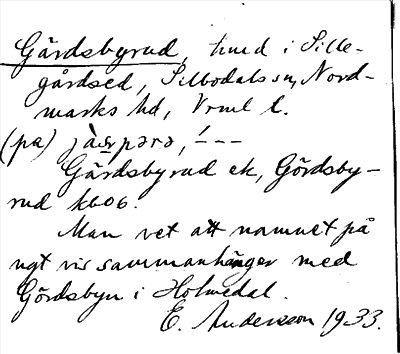 Gärdsbyrud, hmd i Sille-
gårdsed, Silbodals sn, Nord-
marks hd, Vrml l.
(på)
Gärdsbyrud ek, Gördsby-
rud kb06.
Man vet att namnet på
ngt vis sammanhänger med
Gördsbyn i Holmedal.
E. Andersson 1933.